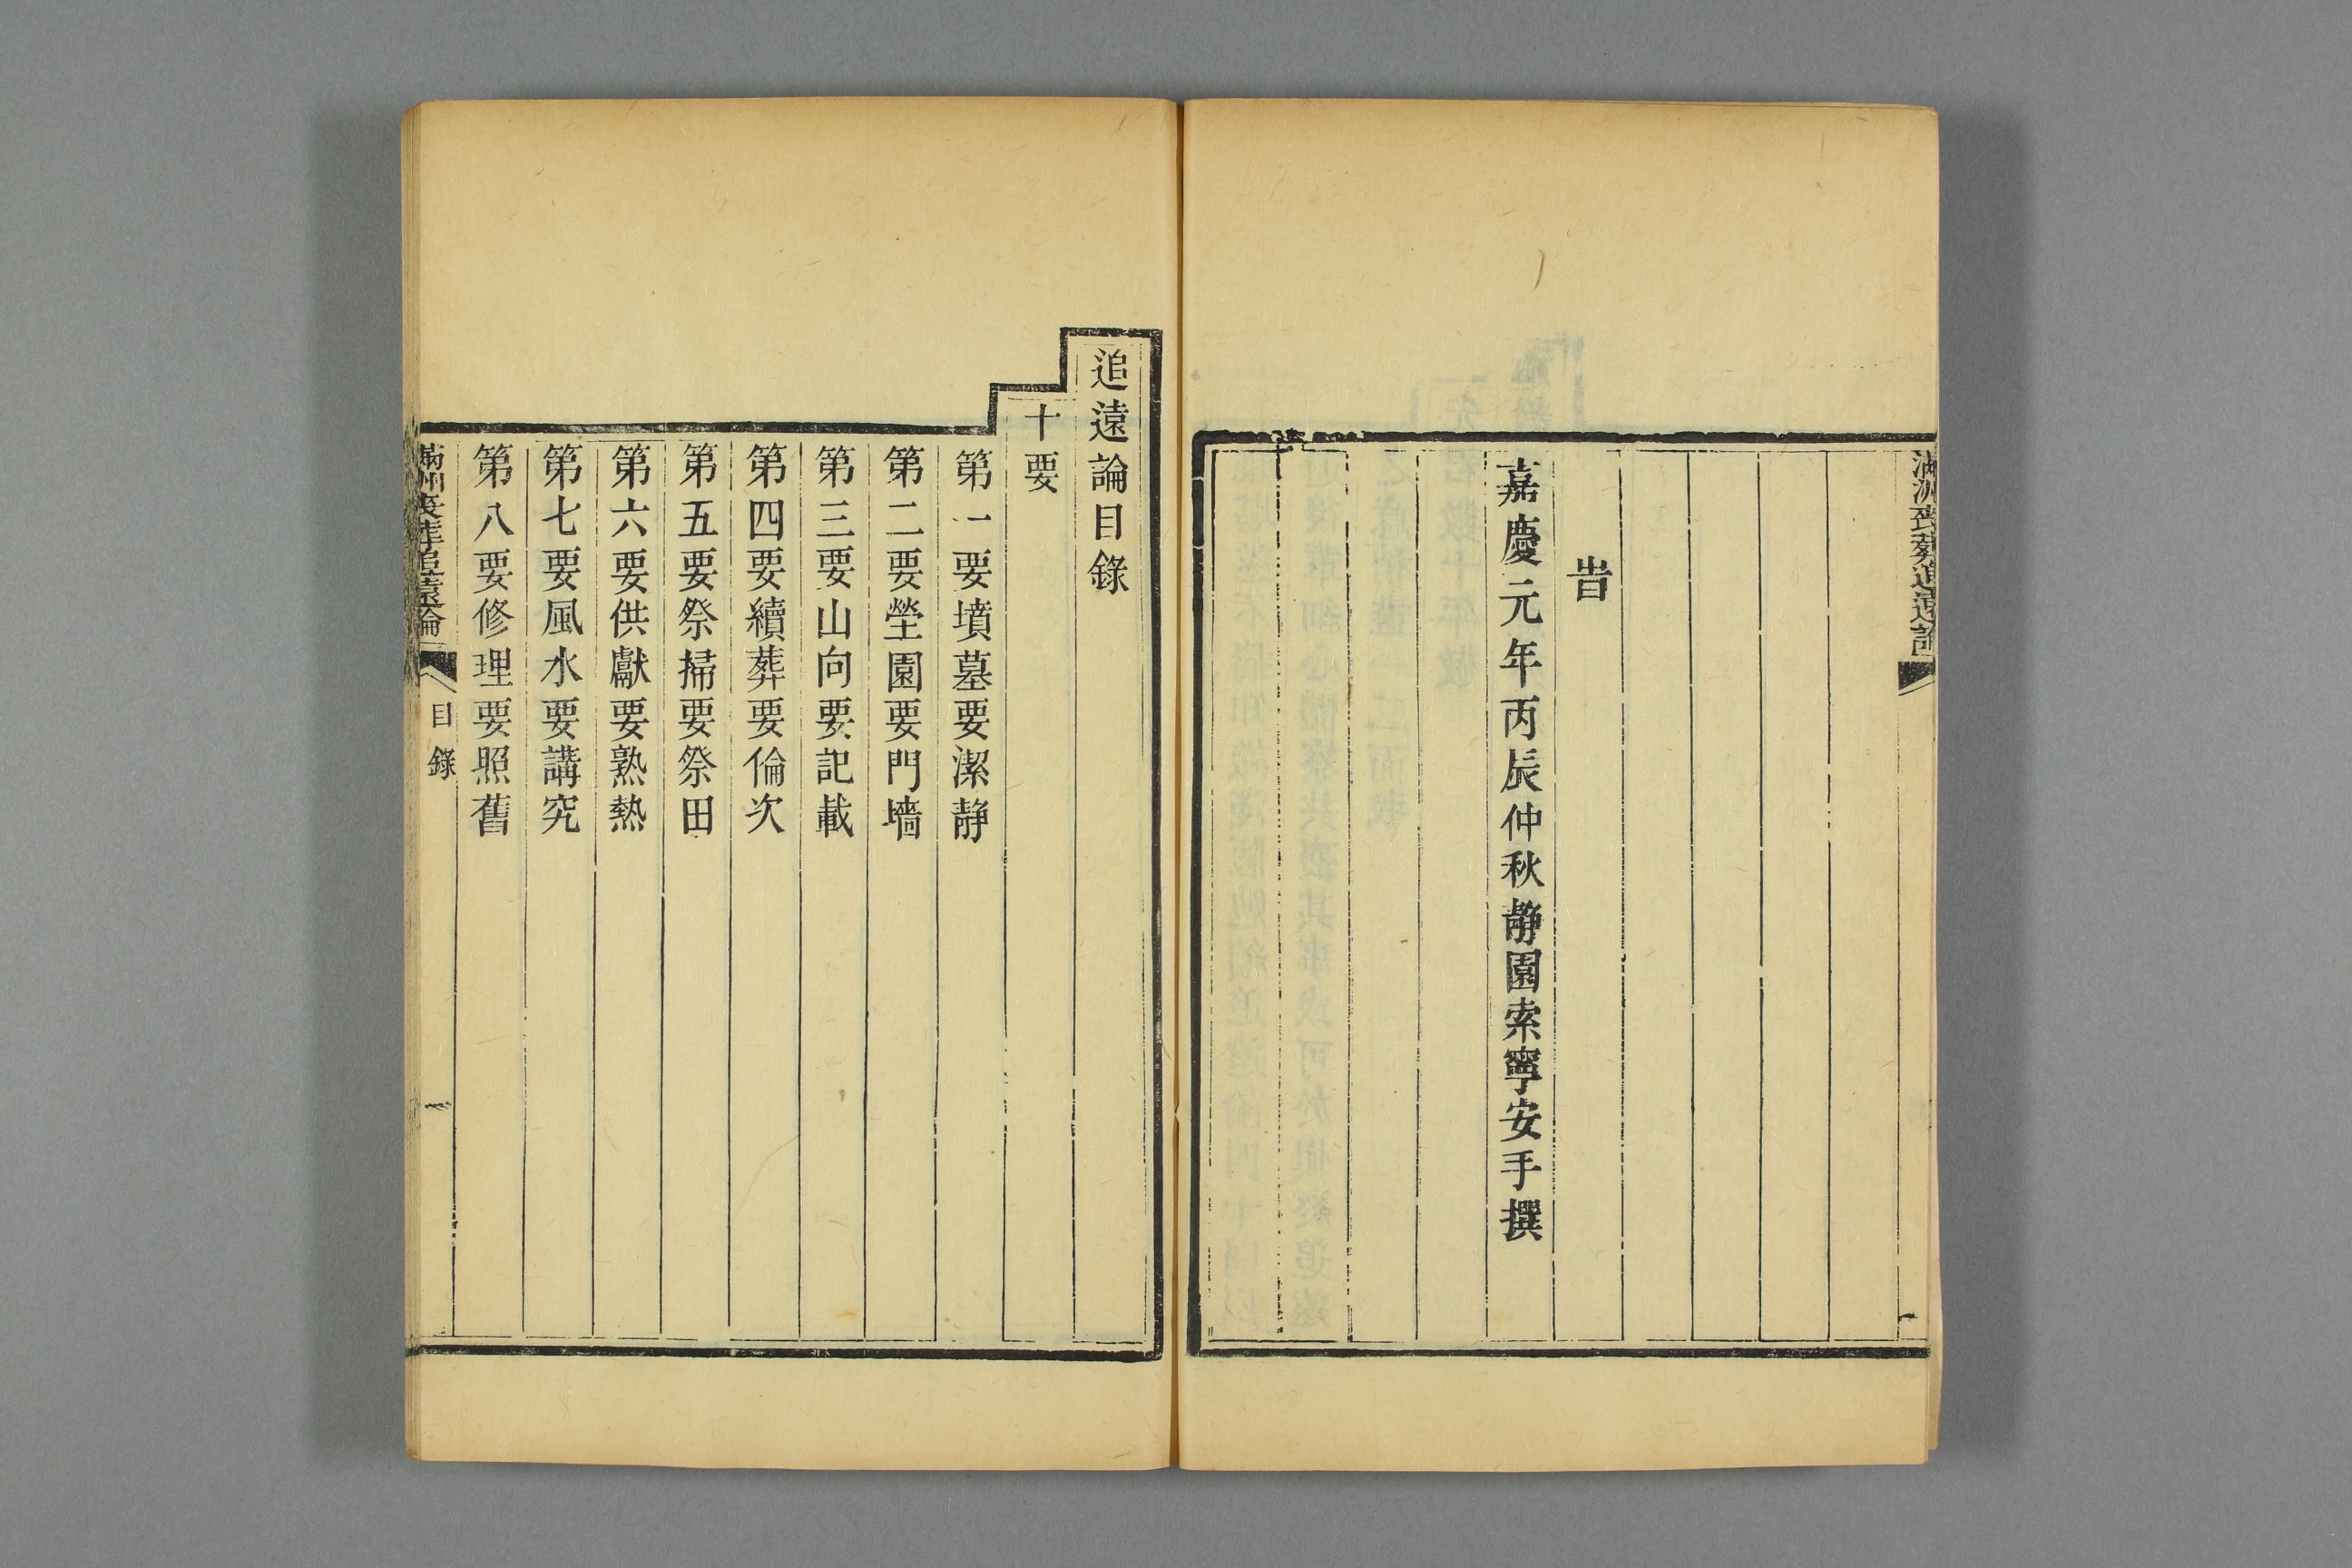 滿洲喪葬追遠論
一
旹
嘉慶元年丙辰仲秋靜園索寧安手撰
追遠論目錄
十要
第一要墳墓要潔靜
第二要塋園要門墻
第三要山向要記載
第四要續葬要倫次
第五要祭掃要祭田
第六要供獻要熟熱
第七要風水要講究
第八要修理要照舊
滿洲喪葬追遠論 目錄 一